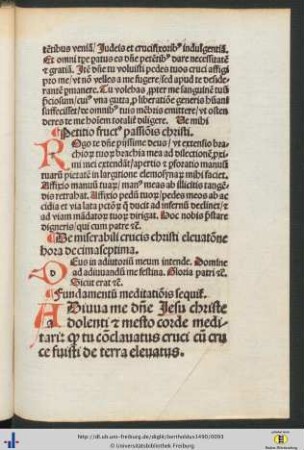 teribus veniā. Iudeis et crucifixoribꝰ indulgentiā.
Et omni tpe patus es dñe petētibꝰ dare necessitatē
⁊ gratiā. Itē dñe tu voluisti pedes tuos cruci affigi
pro me / vt nō velles a me fugere / sed apud te deside-
rantē ꝑmanere. Tu volebas ꝓpter me sanguinē tuū
p̄ciosum / cuiꝰ vna gutta ꝓ liberatiōe generis hūani
suffecisset / de omnibꝰ tuis mēbris emittere / vt osten
deres te me hoīem totalit diligere. Ue mihi
Petitio fructꝰ passiōis christi.
ROgo te dñe piissime deus / vt extensio bra-
chioꝝ tuoꝝ brachia mea ad dilectionē prīmi
mei extendat / apertio ⁊ pforatio manuū
tuarū pietatē in largitione elemosynaꝝ mihi faciet.
Affixio manuū tuaꝝ / manꝰ meas ab illicitis tangē-
dis retrahat. Affixio pedū tuoꝝ / pedes meos ab ac
cidia et via lata pctōꝝ q̄ ducit ad infernū declinet / ⁊
ad viam mādatoꝝ tuoꝝ dirigat. Hoc nobis p̄stare
digneris / qui cum patre ⁊c̄.
De miserabili crucis christi eleuatōne
hora decimaseptima.
DEus in adiutoriū meum intende. Domine
ad adiuuandū me festina. Gloria patri ⁊c̄.
Sicut erat ⁊c̄.
Fundamentū meditatiōis sequit̄.
ADiuua me dñe Jesu christe
dolenti ⁊ mesto corde medi-
tari: ꝙ tu cōclauatus cruci cū cru
ce fuisti de terra eleuatus.
http://dl.ub.uni-freiburg.de/diglit/bertholdus1490/0093
© Universitätsbibliothek Freiburg